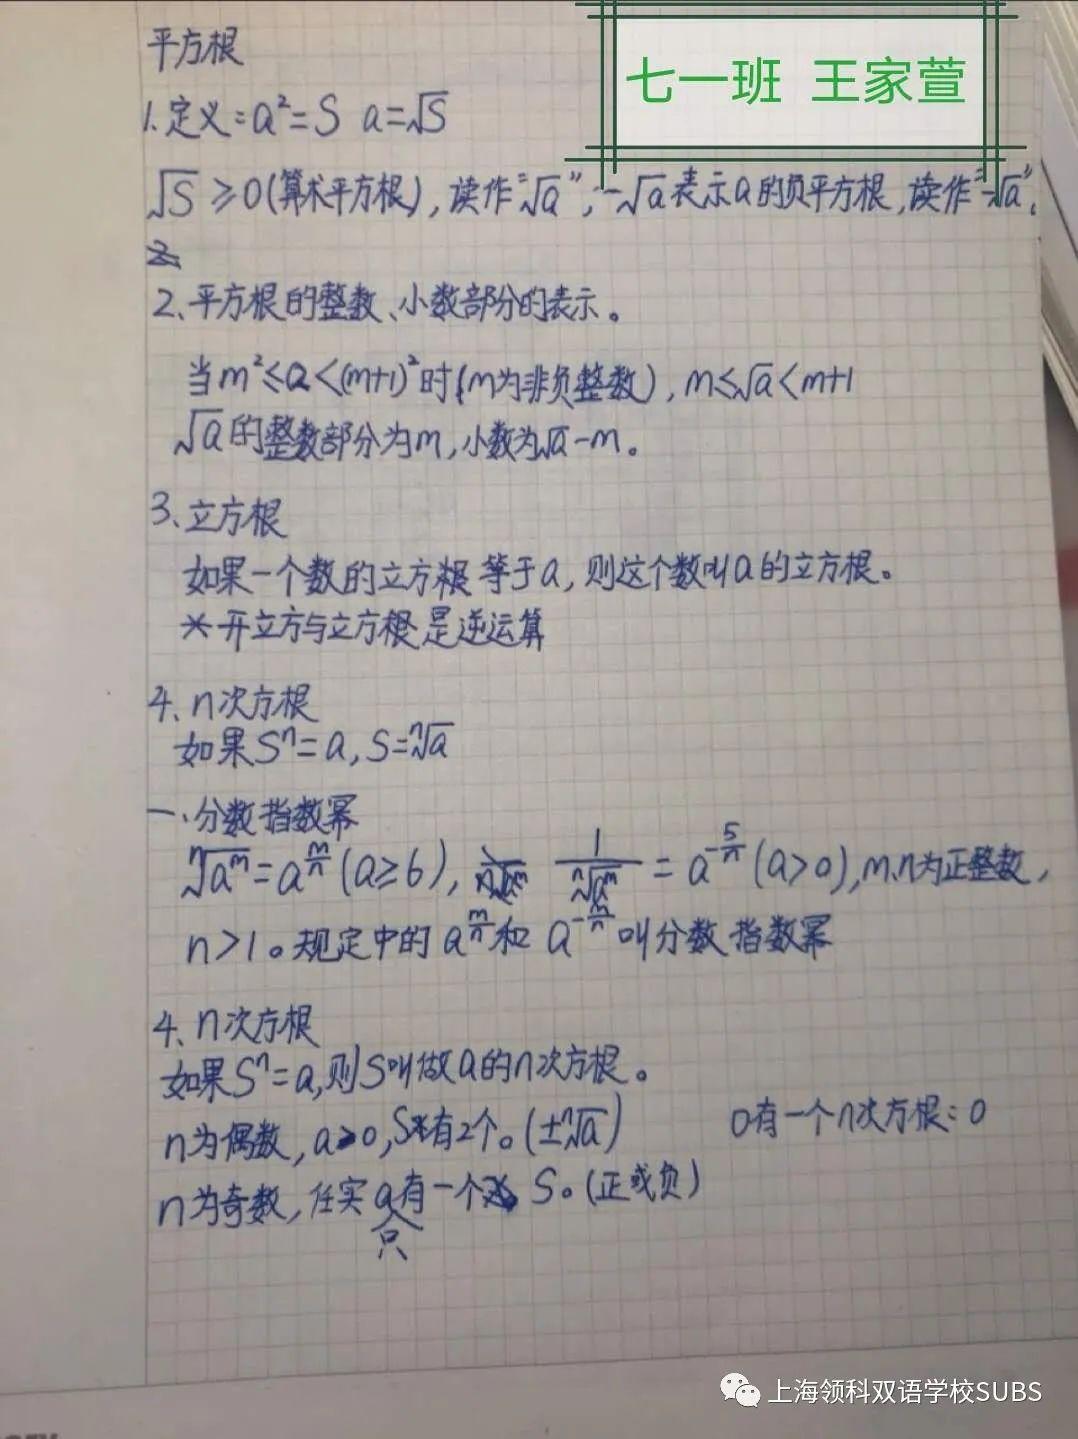 七一班 王家萱
平方根
1.定义:a²=S a=√S
√S≥0(算术平方根),读作"√a",-√a表示a的负平方根,读作"-√a".
2、平方根的整数、小数部分的表示。
当m²≤a<(m+1)²时(m为非负整数),m≤√a<m+1
√a的整数部分为m,小数为√a-m。
3、立方根
如果一个数的立方根等于a,则这个数叫a的立方根。
*开立方与立方根是逆运算
4、n次方根
如果Sⁿ=a,S=ⁿ√a
一、分数指数幂
ⁿ√a^m=a^(m/n)(a≥6), 1/ⁿ√a^m=a^(-5/n)(a>0),m、n为正整数,
n>1。规定中的a^(m/n)和a^(-m/n)叫分数指数幂
4、n次方根
如果Sⁿ=a,则S叫做a的n次方根。
n为偶数,a≥0,S有2个。(±ⁿ√a) 0有一个n次方根:0
n为奇数,任实a只有一个S。(正或负)
上海领科双语学校SUBS